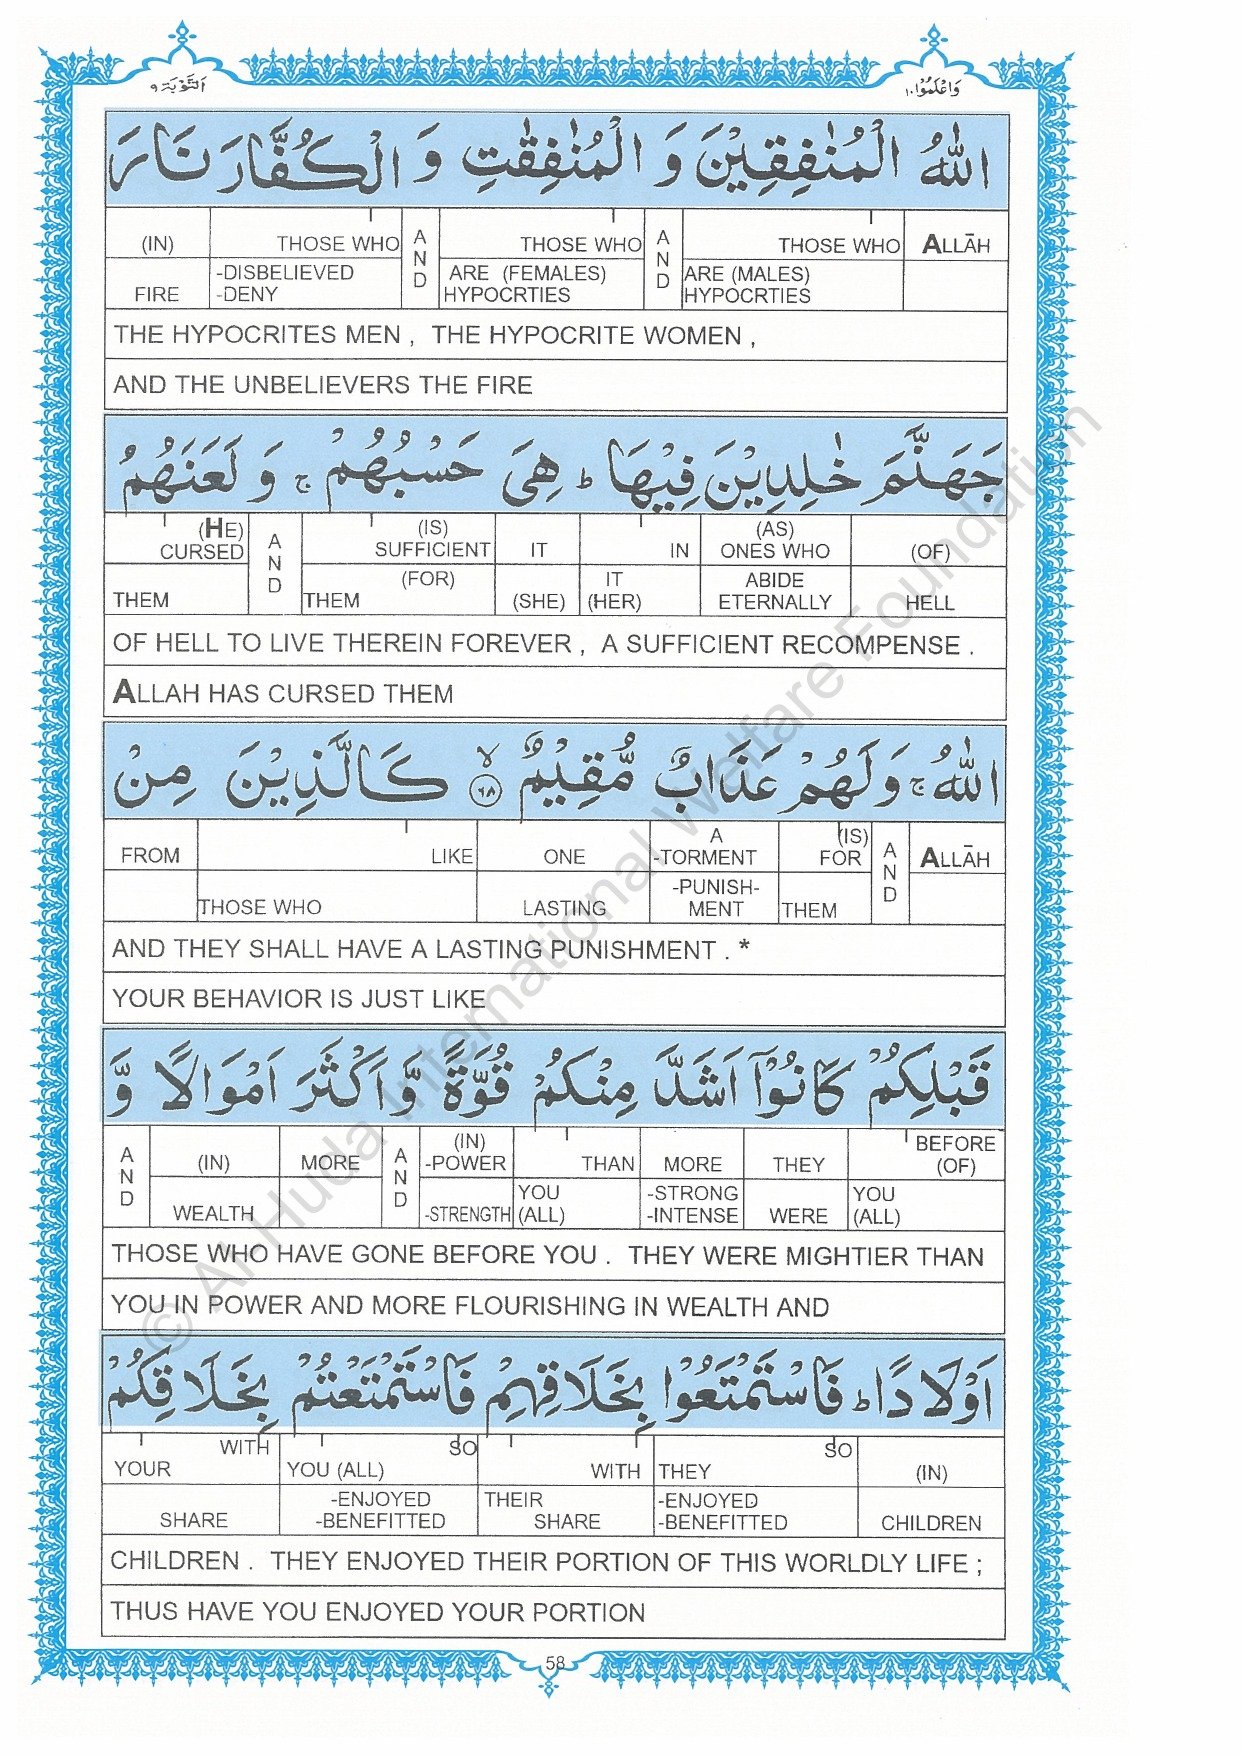 اَلتَّوْبَة ٩
وَاعْلَمُوْا ١٠
اللّٰهُ الْمُنٰفِقِيْنَ وَ الْمُنٰفِقٰتِ وَ الْكُفَّارَ نَارَ
(IN) THOSE WHO AND THOSE WHO AND THOSE WHO ALLĀH
FIRE -DISBELIEVED -DENY ARE (FEMALES) HYPOCRTIES ARE (MALES) HYPOCRTIES
THE HYPOCRITES MEN , THE HYPOCRITE WOMEN ,
AND THE UNBELIEVERS THE FIRE
جَهَنَّمَ خٰلِدِيْنَ فِيْهَا ؕ هِىَ حَسْبُهُمْ ۚ وَ لَعَنَهُمُ
(HE) CURSED AND (IS) SUFFICIENT IT IN (AS) ONES WHO (OF)
THEM (FOR) THEM (SHE) IT (HER) ABIDE ETERNALLY HELL
OF HELL TO LIVE THEREIN FOREVER , A SUFFICIENT RECOMPENSE .
ALLAH HAS CURSED THEM
اللّٰهُ ۚ وَ لَهُمْ عَذَابٌ مُّقِيْمٌ ۙ ﴿٦٨﴾ كَالَّذِيْنَ مِنْ
FROM LIKE ONE A -TORMENT (IS) FOR AND ALLĀH
THOSE WHO LASTING -PUNISH- MENT THEM
AND THEY SHALL HAVE A LASTING PUNISHMENT . *
YOUR BEHAVIOR IS JUST LIKE
قَبْلِكُمْ كَانُوْۤا اَشَدَّ مِنْكُمْ قُوَّةً وَّ اَكْثَرَ اَمْوَالًا وَّ
AND (IN) MORE AND (IN) -POWER THAN MORE THEY BEFORE (OF)
WEALTH -STRENGTH YOU (ALL) -STRONG -INTENSE WERE YOU (ALL)
THOSE WHO HAVE GONE BEFORE YOU . THEY WERE MIGHTIER THAN
YOU IN POWER AND MORE FLOURISHING IN WEALTH AND
اَوْلَادًا ؕ فَاسْتَمْتَعُوْا بِخَلَاقِهِمْ فَاسْتَمْتَعْتُمْ بِخَلَاقِكُمْ
WITH YOUR SO YOU (ALL) WITH SO THEY (IN)
SHARE -ENJOYED -BENEFITTED THEIR SHARE -ENJOYED -BENEFITTED CHILDREN
CHILDREN . THEY ENJOYED THEIR PORTION OF THIS WORLDLY LIFE ;
THUS HAVE YOU ENJOYED YOUR PORTION
58
© Al-Huda International Welfare Foundation